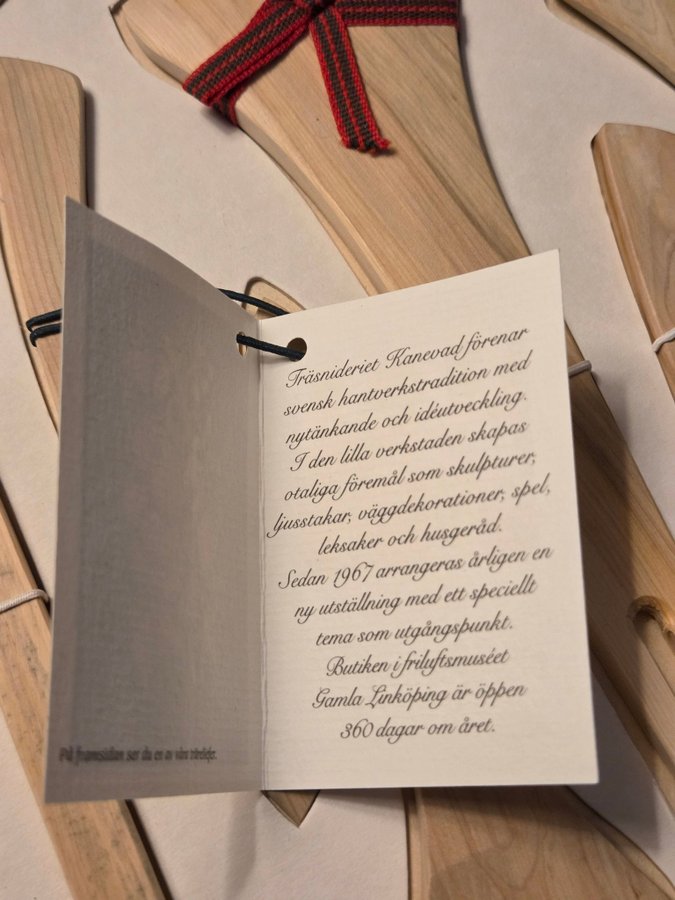 På framsidan ser du en av våra träreliefer.
Träsnideriet Kanevad förenar
svensk hantverkstradition med
nytänkande och idéutveckling.
I den lilla verkstaden skapas
otaliga föremål som skulpturer,
ljusstakar, väggdekorationer, spel,
leksaker och husgeråd.
Sedan 1967 arrangeras årligen en
ny utställning med ett speciellt
tema som utgångspunkt.
Butiken i friluftsmuséet
Gamla Linköping är öppen
360 dagar om året.